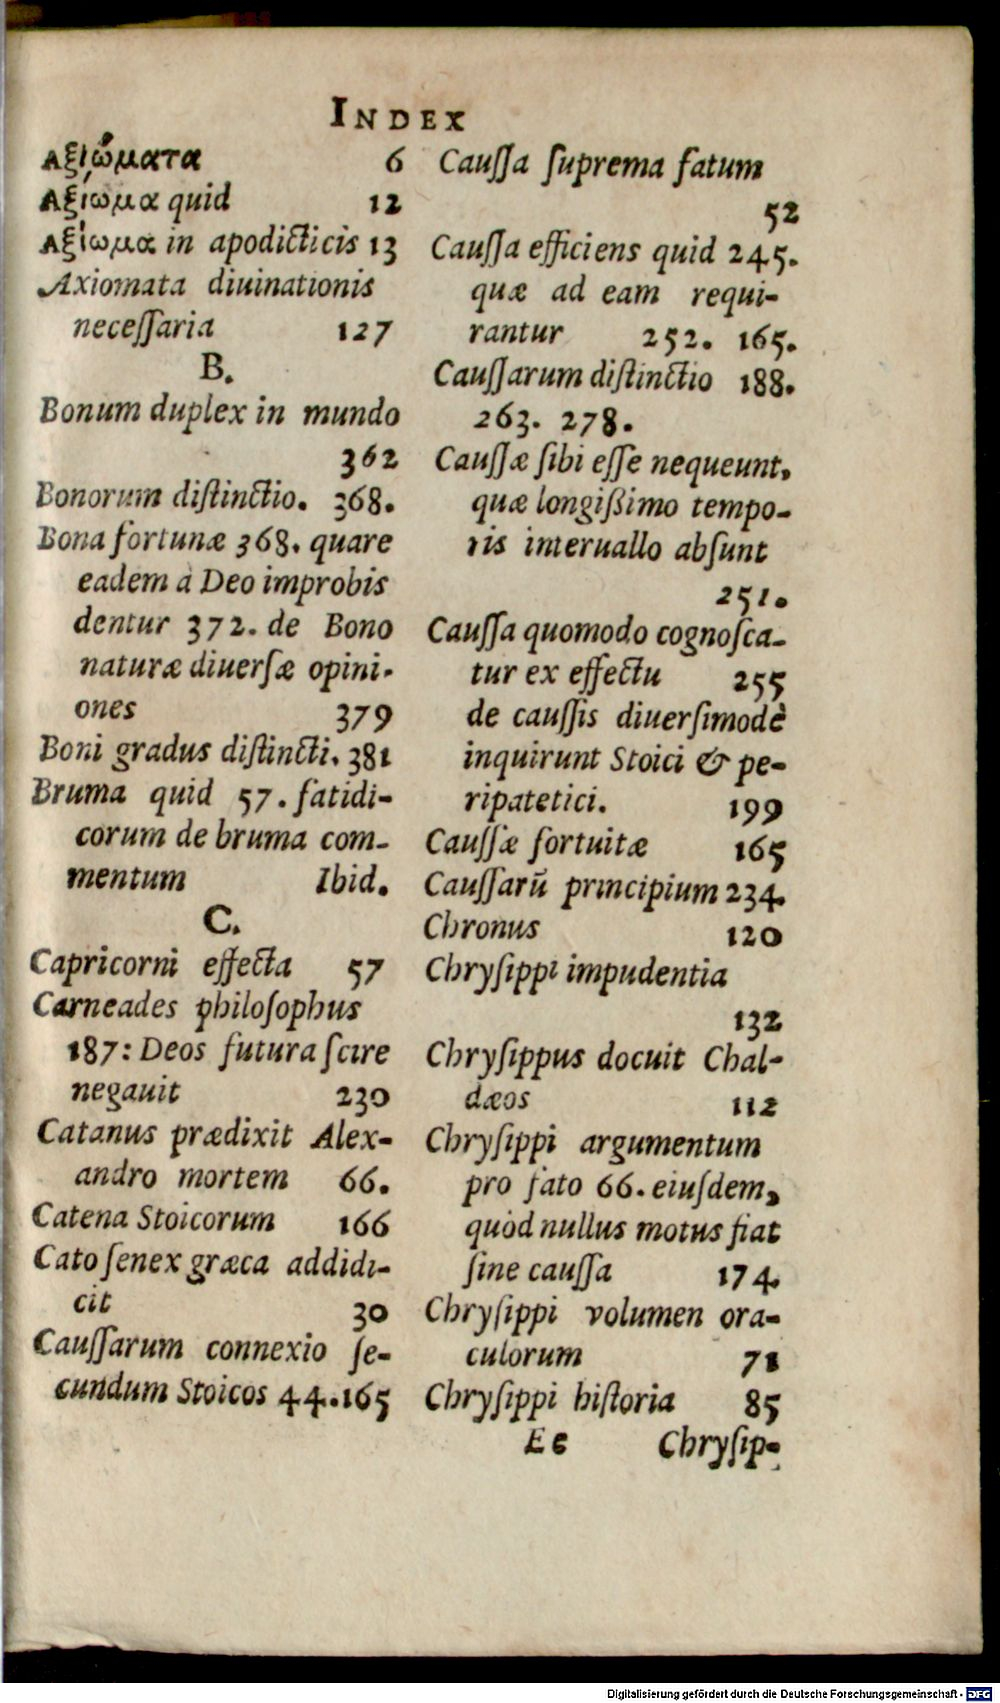 INDEX
Αξιώματα 6
Αξίωμα quid 12
Αξίωμα in apodicticis 13
Axiomata diuinationis
necesſaria 127
B.
Bonum duplex in mundo
362
Bonorum diſtinctio. 368.
Bona fortunæ 368. quare
eadem à Deo improbis
dentur 372. de Bono
naturæ diuerſæ opini-
ones 379
Boni gradus diſtincti. 381
Bruma quid 57. fatidi-
corum de bruma com-
mentum Ibid.
C.
Capricorni effecta 57
Carneades philoſophus
187: Deos futura ſcire
negauit 230
Catanus prædixit Alex-
andro mortem 66.
Catena Stoicorum 166
Cato ſenex græca addidi-
cit 30
Cauſſarum connexio ſe-
cundum Stoicos 44.165
Cauſſa ſuprema fatum
52
Cauſſa efficiens quid 245.
quæ ad eam requi-
rantur 252. 165.
Cauſſarum diſtinctio 188.
263. 278.
Cauſſæ ſibi eſſe nequeunt,
quæ longißimo tempo-
ris interuallo abſunt
251.
Cauſſa quomodo cognoſca-
tur ex effectu 255
de cauſſis diuerſimodè
inquirunt Stoici & pe-
ripatetici. 199
Cauſſæ fortuitæ 165
Cauſſarũ principium 234.
Chronus 120
Chryſippi impudentia
132
Chryſippus docuit Chal-
dæos 112
Chryſippi argumentum
pro fato 66. eiuſdem,
quòd nullus motus fiat
ſine cauſſa 174.
Chryſippi volumen ora-
culorum 71
Chryſippi hiſtoria 85
Ee Chryſip-
Digitalisierung gefördert durch die Deutsche Forschungsgemeinschaft - DFG